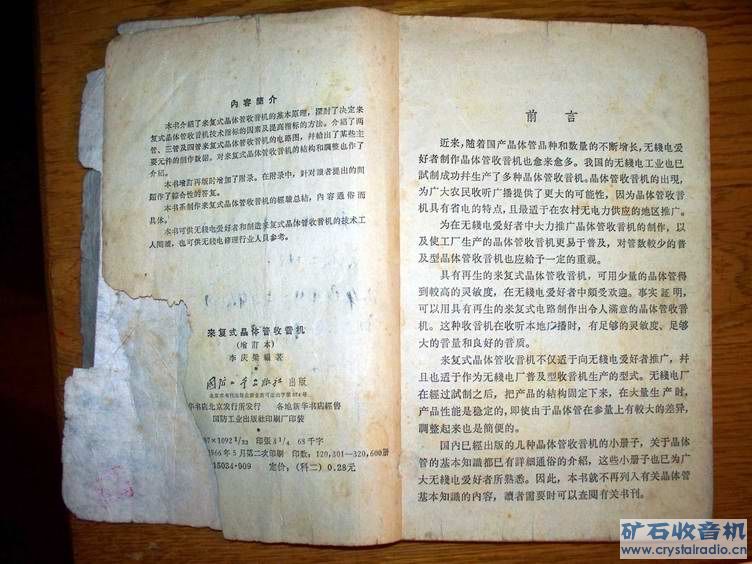 内容簡介
本书介紹了来复式晶体管收音机的基本原理，探討了决定来
复式晶体管收音机技术指标的因素及提高指标的方法。介紹了两
管、三管及四管来复式晶体管收音机的电路图，并給出了某些主
要元件的制作数据。对来复式晶体管收音机的结构和調整也作了
介紹。
本书增訂再版时增加了附录。在附录中，针对讀者提出的問
題作了綜合性的答复。
本书系制作来复式晶体管收音机的經驗总結，內容通俗而
具体。
本书可供无綫电爱好者和制造来复式晶体管收音机的技术工
人閱讀，也可供无綫电修理行业人員参考。
来复式晶体管收音机
(增訂本)
李庆 編著
国防工业出版社 出版
北京市书刊出版业营业許可証出字第074号
华书店北京发行所发行 各地新华书店經售
国防工业出版社印刷厂印装
87×1092 1/32 印张3 1/4 68千字
1966年5月第二次印刷 印数：120,301—320,600册
15034·909 定价：(科二) 0.28元
前言
近来，随着国产晶体管品种和数量的不断增长，无綫电爱
好者制作晶体管收音机也愈来愈多。我国的无綫电工业也已
試制成功幷生产了多种晶体管收音机。晶体管收音机的出現，
为广大农民收听广播提供了更大的可能性，因为晶体管收音
机具有省电的特点，且最适于在农村无电力供应的地区推广。
为在无綫电爱好者中大力推广晶体管收音机的制作，以
及使工厂生产的晶体管收音机更易于普及，对管数較少的普
及型晶体管收音机也应給予一定的重视。
具有再生的来复式晶体管收音机，可用少量的晶体管得
到較高的灵敏度，在无綫电爱好者中頗受欢迎。事实証明，
可以用具有再生的来复式电路制作出令人滿意的晶体管收音
机。这种收音机在收听本地广播时，有足够的灵敏度、足够
大的音量和良好的音质。
来复式晶体管收音机不仅适于向无綫电爱好者推广，幷
且也适于作为无綫电厂普及型收音机生产的型式。无綫电厂
在經过試制之后，把产品的结构固定下来，在大量生产时，
产品性能是稳定的，即使由于晶体管在参量上有較大的差异，
調整起来也是簡便的。
国内已經出版的几种晶体管收音机的小册子，关于晶体
管的基本知識都已有詳細通俗的介紹，这些小册子也已为广
大无綫电爱好者所熟悉。因此，本书就不再列入有关晶体管
基本知識的内容，讀者需要时可以查閱有关书刊。
矿石收音机
www.crystalradio.cn